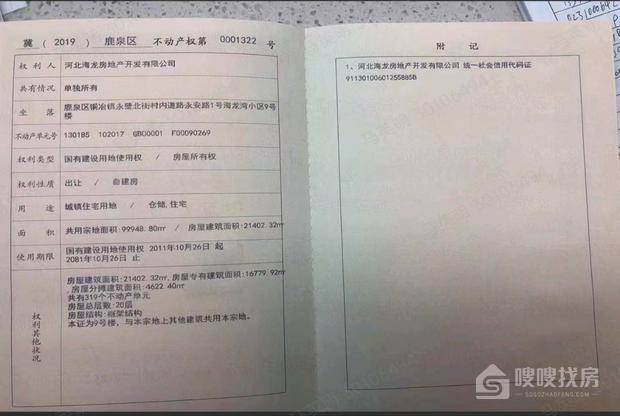 冀(2019)鹿泉区不动产权第0001322号
权利人 河北海龙房地产开发有限公司
共有情况 单独所有
坐落 鹿泉区铜冶镇永壁北街村内道路永安路1号海龙湾小区9号楼
不动产单元号 130185 102017 GB00001 F00090269
权利类型 国有建设用地使用权 / 房屋所有权
权利性质 出让 / 自建房
用途 城镇住宅用地 / 仓储,住宅
面积 共用宗地面积:99948.80㎡ / 房屋建筑面积:21402.32㎡
使用期限 国有建设用地使用权 2011年10月26日 起
2081年10月26日 止
权利其他状况
房屋建筑面积:21402.32㎡,房屋专有建筑面积:16779.92㎡
,房屋分摊建筑面积:4622.40㎡
共有319个不动产单元
房屋总层数:20层
房屋结构:框架结构
本证为9号楼,与本宗地上其他建筑共用本宗地。
附记
1、河北海龙房地产开发有限公司 统一社会信用代码证
91130100601255885B
嗖嗖找房
SOSOZHAOFANG.COM